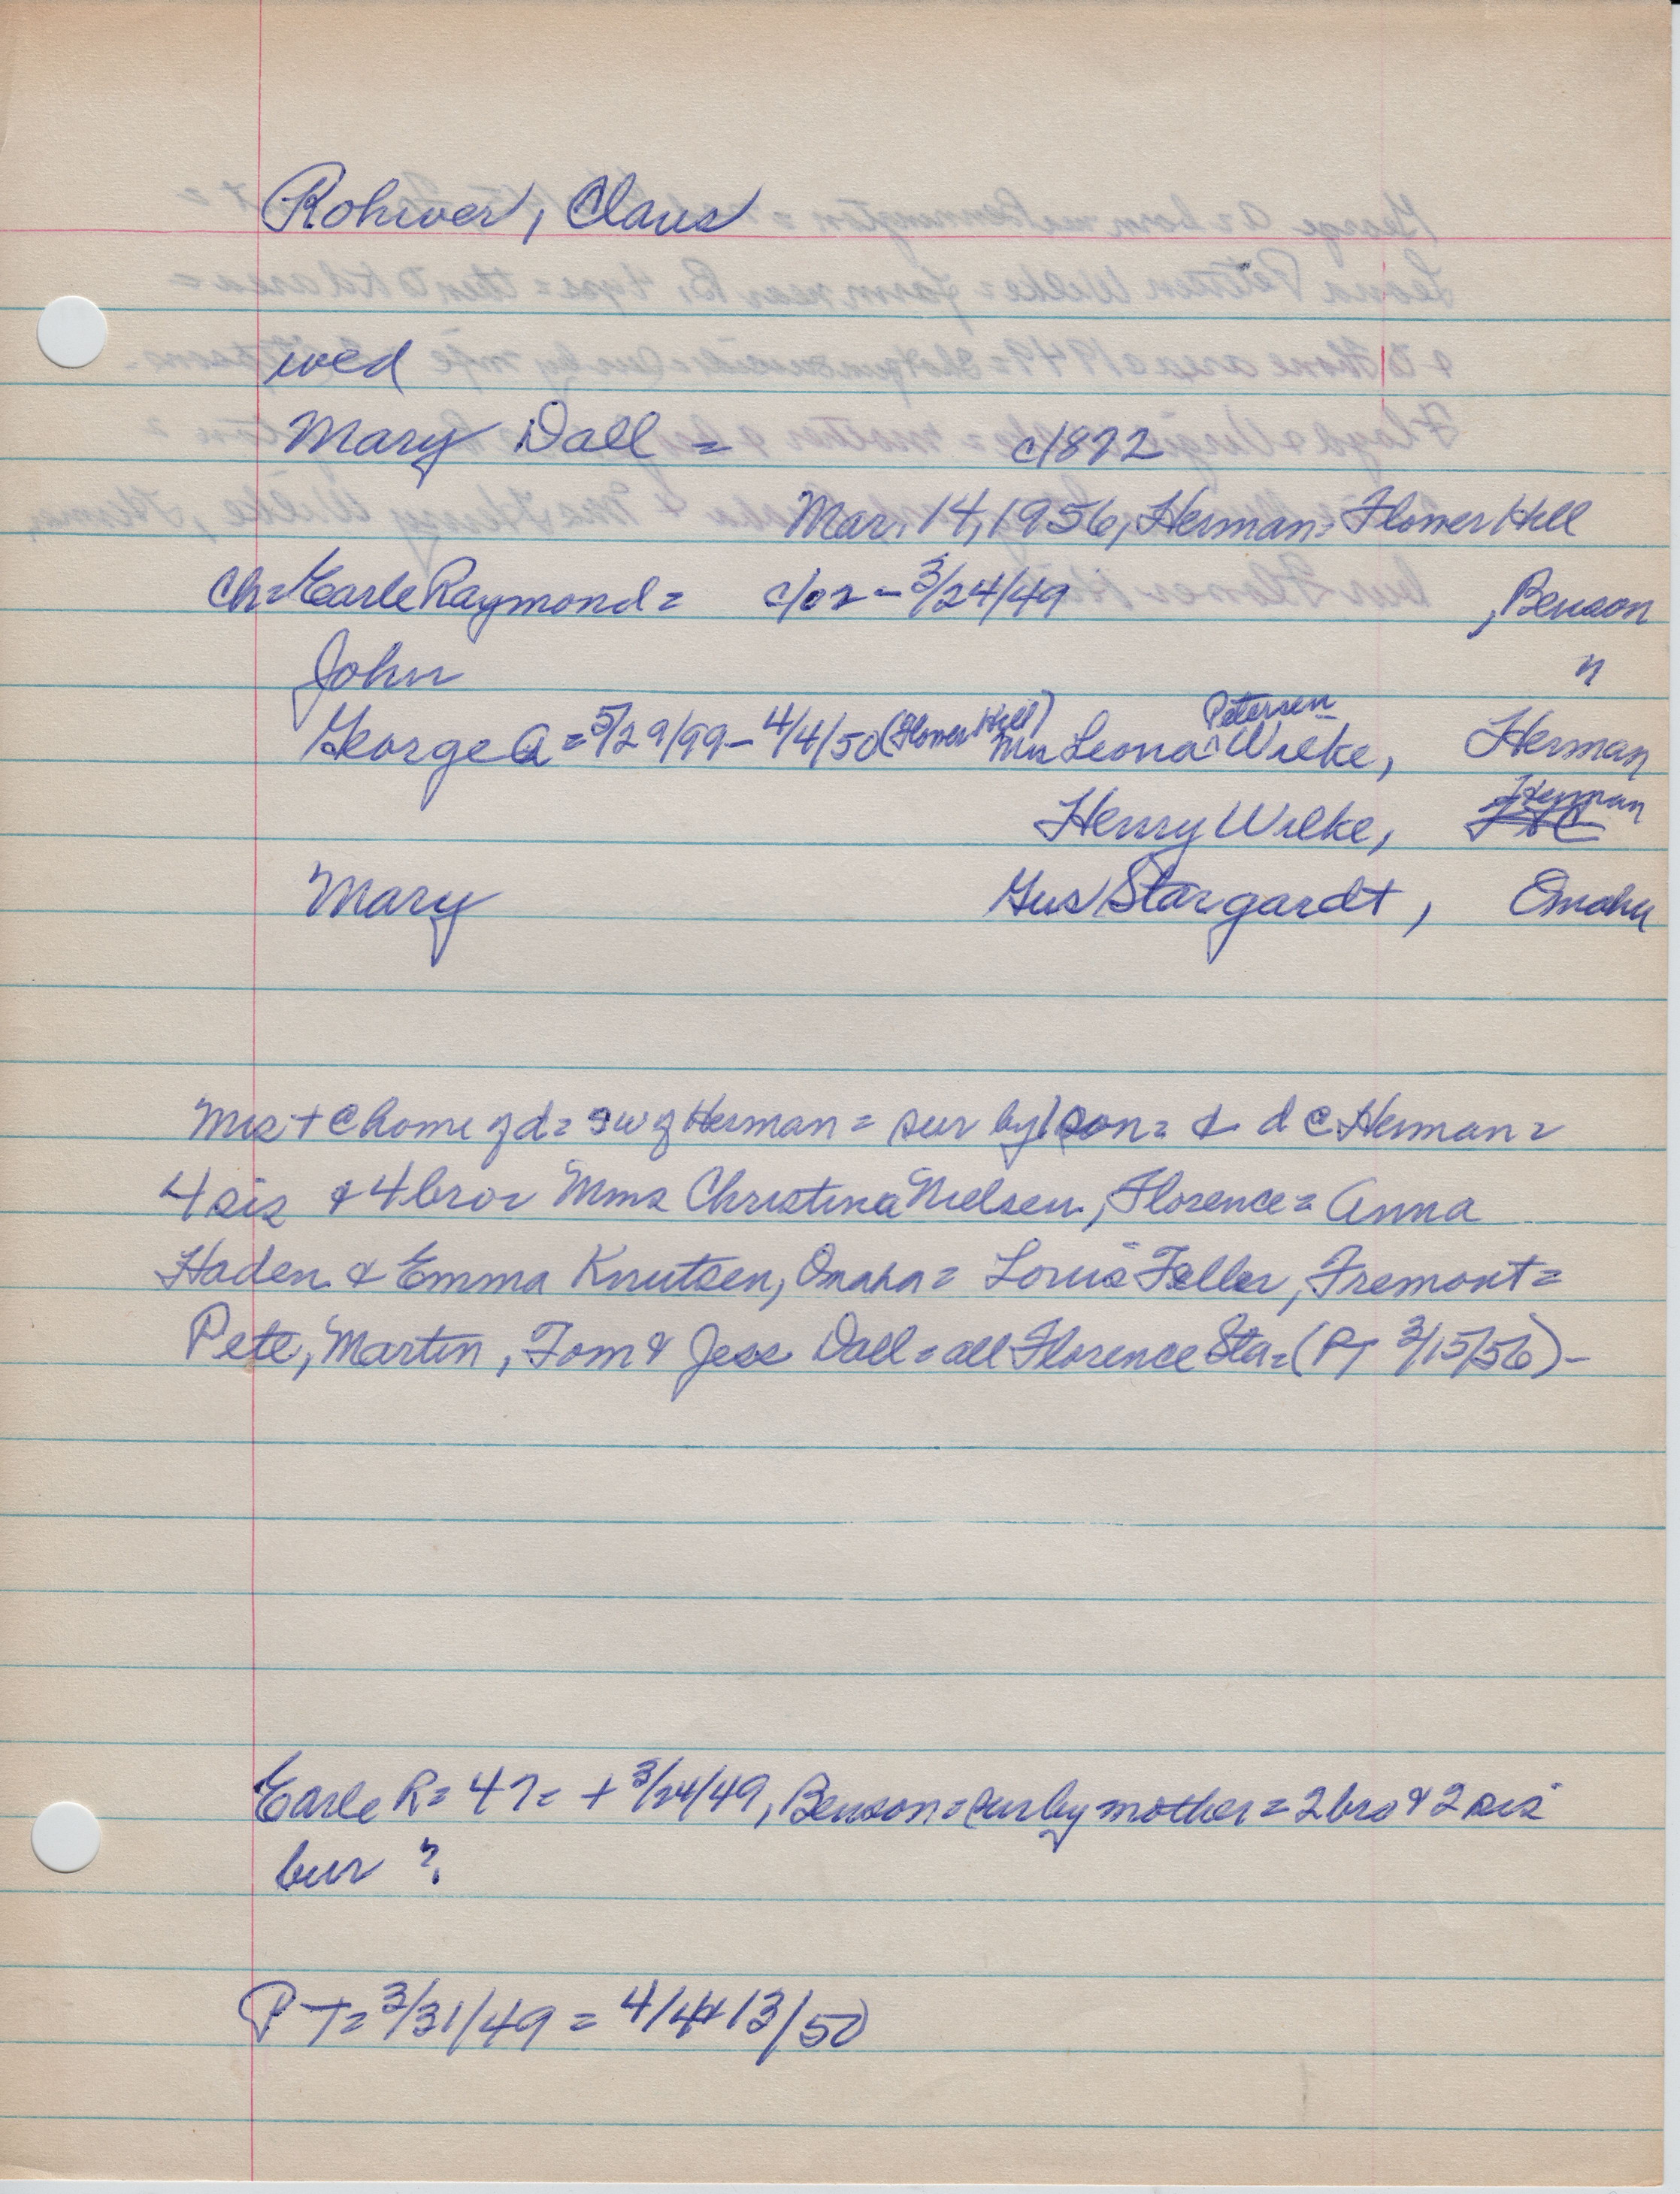 Rohwer, Claus
wed
Mary Dall = c1872
Mar. 14, 1956, Herman = Flower Hill
Ch = Earle Raymond = c/02 - 3/24/49 , Benson
John "
George A = 5/29/99 - 4/4/50 (Flower Hill) Mrs Leona Petersen Wilke, Herman
Henry Wilke, Herman
Mary Gus Stargardt, Omaha
Mrs + @ home of d = sw of Herman = sur by 1 son = & d @ Herman =
4 sis & 4 bro = Mms Christina Nielsen, Florence = Anna
Haden & Emma Knutsen, Omaha = Louis Feller, Fremont =
Pete, Martin, Tom & Jess Dall = all Florence Sta = (PT 3/15/56) -
Earle R = 47 = + 3/24/49, Benson = sur by mother = 2 bro & 2 sis
bur ?
PT = 3/31/49 = 4/4 + 13/50